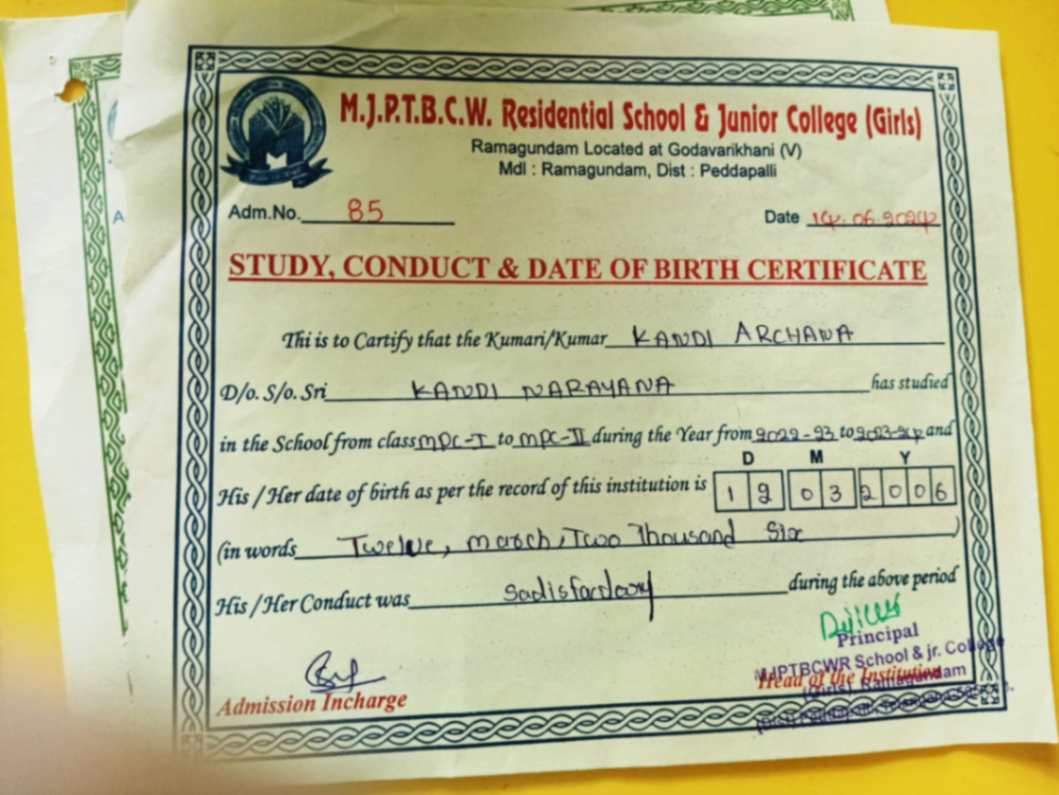 M.J.P.T.B.C.W. Residential School & Junior College (Girls)
Ramagundam Located at Godavarikhani (V)
Mdl : Ramagundam, Dist : Peddapalli
Adm.No. 85 Date 14.06.2024
STUDY, CONDUCT & DATE OF BIRTH CERTIFICATE
Thi is to Cartify that the Kumari/Kumar KANDI ARCHANA
D/o. S/o. Sri KANDI NARAYANA has studied
in the School from class MPC-I to MPC-II during the Year from 2022-23 to 2023-24 and
D M Y
His / Her date of birth as per the record of this institution is 12 03 2006
(in words Twelve, march, Two Thousand Six )
His / Her Conduct was Sadisfardory during the above period
Principal
MJPTBCWR School & jr. College
Admission Incharge Head of the Institution
(Girls), Ramagundam